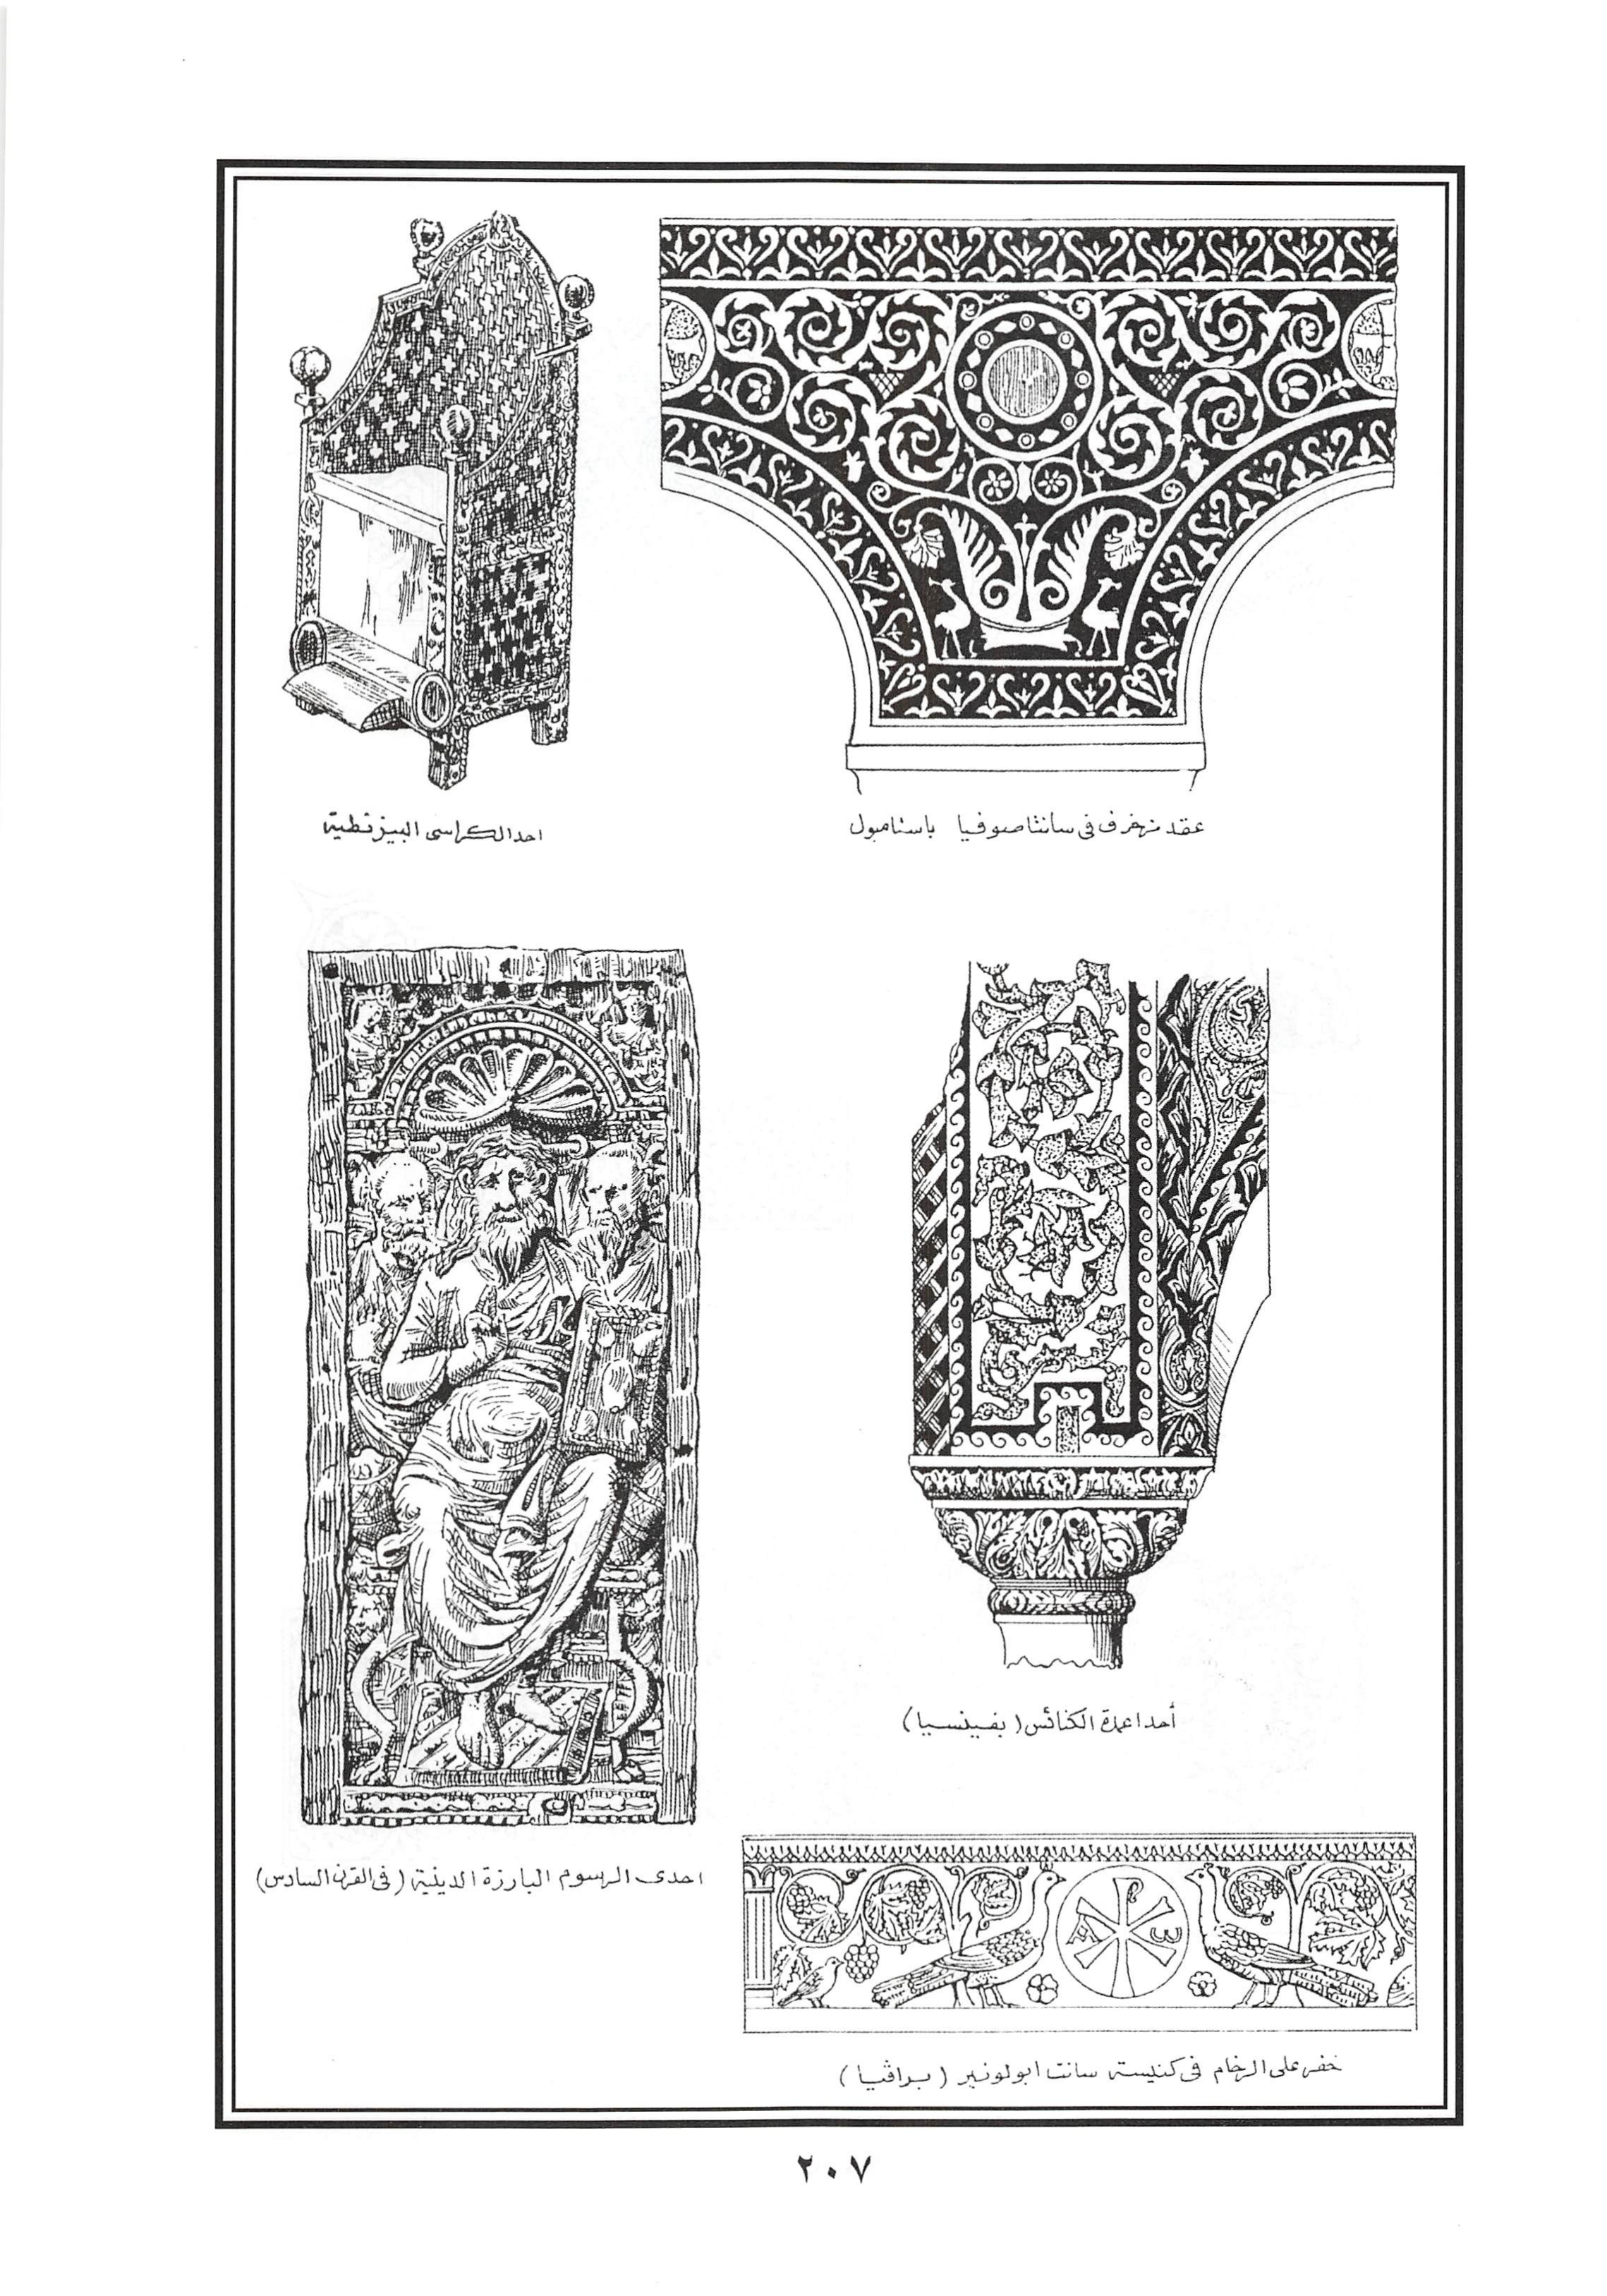 عقد مزخرف فى سانتا صوفيا باستامبول
احد الكراسى البيزنطية
أحد اعمدة الكنائس (بفينسيا)
احدى الرسوم البارزة الدينية (فى القرن السادس)
A ω
حفر على الرخام فى كنيسة سانت ابولونير (براڤنيا)
٢٠٧